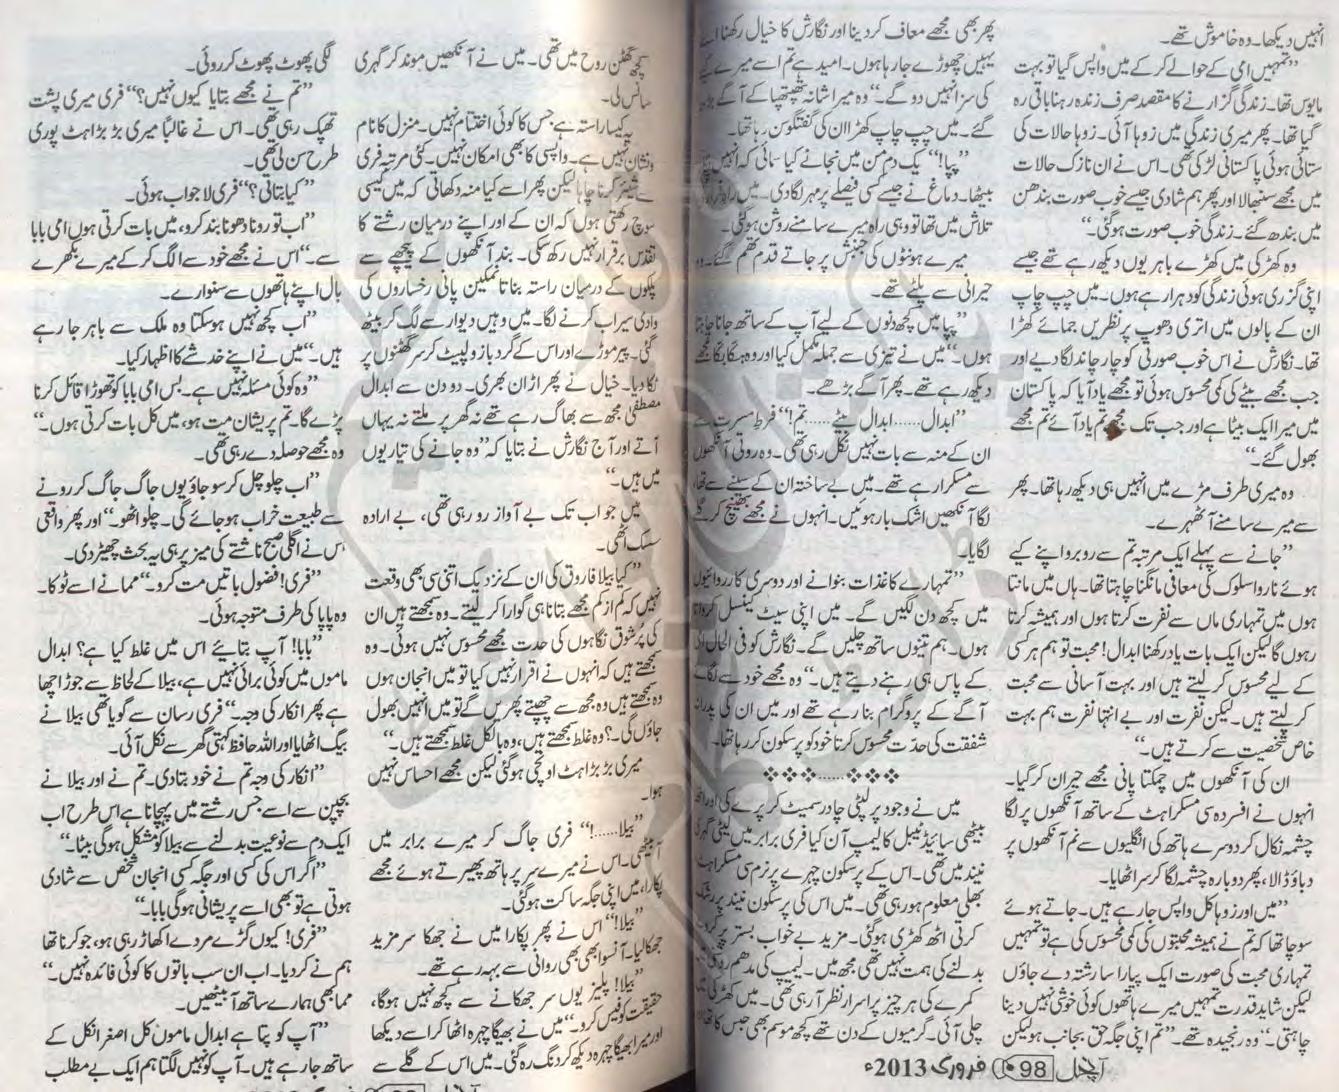 انہیں دیکھا۔ وہ خاموش تھے۔
”تمہیں امی کے حوالے کر کے میں واپس گیا تو بہت
مایوس تھا۔ زندگی گزارنے کا مقصد صرف زندہ رہنا باقی رہ
گیا تھا۔ پھر میری زندگی میں زوہا آئی۔ زوہا حالات کی
ستائی ہوئی پاکستانی لڑکی تھی۔ اس نے ان نازک حالات
میں مجھے سنبھالا اور پھر ہم شادی جیسے خوب صورت بندھن
میں بندھ گئے۔ زندگی خوب صورت ہوگئی۔“
وہ کھڑکی میں کھڑے باہر یوں دیکھ رہے تھے جیسے
اپنی گزری ہوئی زندگی کو دہرا رہے ہوں۔ میں چپ چاپ
ان کے بالوں میں اتری دھوپ پر نظریں جمائے کھڑا
تھا۔ نگارش نے اس خوب صورتی کو چار چاند لگا دیے اور
جب مجھے بیٹے کی کمی محسوس ہوئی تو مجھے یاد آیا کہ پاکستان
میں میرا ایک بیٹا ہے اور جب تک مجھے تم یاد آئے تم مجھے
بھول گئے۔“
وہ میری طرف مڑے میں انہیں ہی دیکھ رہا تھا۔ پھر
سے میرے سامنے آ ٹھہرے۔
”جانے سے پہلے ایک مرتبہ تم سے روبرو اپنے کیے
ہوئے ناروا سلوک کی معافی مانگنا چاہتا تھا۔ ہاں میں مانتا
ہوں میں تمہاری ماں سے نفرت کرتا ہوں اور ہمیشہ کرتا
رہوں گا لیکن ایک بات یاد رکھنا ابدال! محبت تو ہم ہر کسی
کے لیے محسوس کر لیتے ہیں اور بہت آسانی سے محبت
کر لیتے ہیں۔ لیکن نفرت اور بے انتہا نفرت ہم بہت
خاص شخصیت سے کرتے ہیں۔“
ان کی آنکھوں میں چمکتا پانی مجھے حیران کر گیا۔
انہوں نے افسردہ سی مسکراہٹ کے ساتھ آنکھوں پر لگا
چشمہ نکال کر دوسرے ہاتھ کی انگلیوں سے نم آنکھوں پر
دباؤ ڈالا، پھر دوبارہ چشمہ لگا کر سر اٹھایا۔
”میں اور زوہا کل واپس جا رہے ہیں۔ جاتے ہوئے
سوچا تھا کہ تم نے ہمیشہ محبتوں کی کمی محسوس کی ہے تو تمہیں
تمہاری محبت کی صورت ایک پیارا سا رشتہ دے جاؤں
لیکن شاید قدرت تمہیں میرے ہاتھوں کوئی خوشی نہیں دینا
چاہتی۔“ وہ رنجیدہ تھے۔ ”تم اپنی جگہ حق بجانب ہو لیکن
پھر بھی مجھے معاف کر دینا اور نگارش کا خیال رکھنا اسے
یہیں چھوڑے جا رہا ہوں۔ امید ہے تم اسے میرے کیے
کی سزا نہیں دو گے۔“ وہ میرا شانہ تھپتھپا کے آگے بڑھ
گئے۔ میں چپ چاپ کھڑا ان کی گفتگو سن رہا تھا۔
”پپا!“ یک دم من میں نجانے کیا سمائی کہ انہیں پکار
بیٹھا۔ دماغ نے جیسے کسی فیصلے پر مہر لگا دی۔ میں راہ فرار کی
تلاش میں تھا تو وہی راہ میرے سامنے روشن ہوگئی۔
میرے ہونٹوں کی جنبش پر جاتے قدم تھم گئے۔ وہ
حیرانی سے پلٹے تھے۔
”پپا میں کچھ دنوں کے لیے آپ کے ساتھ جانا چاہتا
ہوں۔“ میں نے تیزی سے جملہ مکمل کیا اور وہ ہکا بکا مجھے
دیکھ رہے تھے۔ پھر آگے بڑھے۔
”ابدال...... ابدال بیٹے...... تم!“ فرط مسرت سے
ان کے منہ سے بات نہیں نکل رہی تھی۔ وہ روتی آنکھوں
سے مسکرا رہے تھے۔ میں بے ساختہ ان کے سینے سے
لگا آنکھیں اشک بار ہوئیں۔ انہوں نے مجھے بھینچ کر گلے
لگایا۔
”تمہارے کاغذات بنوانے اور دوسری کارروائیوں
میں کچھ دن لگیں گے۔ میں اپنی سیٹ کینسل کرواتا
ہوں۔ ہم تینوں ساتھ چلیں گے۔ نگارش کو فی الحال امی
کے پاس ہی رہنے دیتے ہیں۔“ وہ مجھے خود سے لگائے
آگے کے پروگرام بنا رہے تھے اور میں ان کی پدرانہ
شفقت کی حدت محسوس کرتا خود کو پرسکون کر رہا تھا۔
❖❖❖......❖❖❖
میں نے وجود پر لپٹی چادر سمیٹ کر پرے کی اور اٹھ
بیٹھی سائیڈ ٹیبل کا لیمپ آن کیا فری برابر میں لیٹی گہری
نیند میں تھی۔ اس کے پرسکون چہرے پر نرم سی مسکراہٹ
بھلی معلوم ہو رہی تھی۔ میں اس کی پرسکون نیند پر رشک
کرتی اٹھ کھڑی ہوگئی۔ مزید بے خواب بستر پر کروٹ
بدلنے کی ہمت نہیں تھی مجھ میں۔ لیمپ کی مدھم روشنی میں
کمرے کی ہر چیز پراسرار نظر آ رہی تھی۔ میں کھڑکی میں
چلی آئی۔ گرمیوں کے دن تھے کچھ موسم بھی حبس کا تھا اور
آنچل 98 فروری 2013ء
کچھ گھٹن روح میں تھی۔ میں نے آنکھیں موند کر گہری
سانس لی۔
یہ کیسا راستہ ہے جس کا کوئی اختتام نہیں۔ منزل کا نام
ونشان نہیں ہے۔ واپسی کا بھی امکان نہیں۔ کئی مرتبہ فری
سے شیئر کرنا چاہا لیکن پھر اسے کیا منہ دکھاتی کہ میں کیسی
سوچ رکھتی ہوں کہ ان کے اور اپنے درمیان رشتے کا
تقدس برقرار نہیں رکھ سکی۔ بند آنکھوں کے پیچھے سے
پلکوں کے درمیان راستہ بناتا نمکین پانی رخساروں کی
وادی سیراب کرنے لگا۔ میں وہیں دیوار سے لگ کر بیٹھ
گئی۔ پیر موڑے اور اس کے گرد بازو لپیٹ کر سر گھٹنوں پر
ٹکا دیا۔ خیال نے پھر اڑان بھری۔ دو دن سے ابدال
مصطفیٰ مجھ سے بھاگ رہے تھے نہ گھر پر ملتے نہ یہاں
آتے اور آج نگارش نے بتایا کہ ”وہ جانے کی تیاریوں
میں ہیں۔“
میں جو اب تک بے آواز رو رہی تھی، بے ارادہ
سسک اٹھی۔
”کیا بیلا فاروق کی ان کے نزدیک اتنی سی بھی وقعت
نہیں کہ کم از کم مجھے بتانا ہی گوارا کر لیتے۔ وہ سمجھتے ہیں ان
کی پرشوق نگاہوں کی حدت مجھے محسوس نہیں ہوئی۔ وہ
سمجھتے ہیں کہ انہوں نے اقرار نہیں کیا تو میں انجان ہوں
وہ سمجھتے ہیں وہ مجھ سے چھپتے پھریں گے تو میں انہیں بھول
جاؤں گی۔؟ وہ غلط سمجھتے ہیں، وہ بالکل غلط سمجھتے ہیں۔“
میری بڑبڑاہٹ اونچی ہوگئی لیکن مجھے احساس نہیں
ہوا۔
”بیلا......!“ فری جاگ کر میرے برابر میں
آ بیٹھی۔ اس نے میرے سر پر ہاتھ پھیرتے ہوئے مجھے
پکارا، میں اپنی جگہ ساکت ہوگئی۔
”بیلا!“ اس نے پھر پکارا میں نے جھکا سر مزید
جھکا لیا۔ آنسو ابھی بھی روانی سے بہہ رہے تھے۔
”بیلا! پلیز یوں سر جھکانے سے کچھ نہیں ہوگا،
حقیقت کو فیس کرو۔“ میں نے بھیگا چہرہ اٹھا کر اسے دیکھا
اور میرا بھیگا چہرہ دیکھ کر دنگ رہ گئی۔ میں اس کے گلے سے
لگی پھوٹ پھوٹ کر روئی۔
”تم نے مجھے بتایا کیوں نہیں؟“ فری میری پشت
تھپک رہی تھی۔ اس نے غالباً میری بڑبڑاہٹ پوری
طرح سن لی تھی۔
”کیا بتاتی؟“ فری لاجواب ہوئی۔
”اب تو رونا دھونا بند کرو، میں بات کرتی ہوں امی بابا
سے۔“ اس نے مجھے خود سے الگ کر کے میرے بکھرے
بال اپنے ہاتھوں سے سنوارے۔
”اب کچھ نہیں ہو سکتا وہ ملک سے باہر جا رہے
ہیں۔“ میں نے اپنے خدشے کا اظہار کیا۔
”وہ کوئی مسئلہ نہیں ہے۔ بس امی بابا کو تھوڑا قائل کرنا
پڑے گا۔ تم پریشان مت ہو، میں کل بات کرتی ہوں۔“
وہ مجھے حوصلہ دے رہی تھی۔
”اب چلو چل کر سو جاؤ یوں جاگ جاگ کر رونے
سے طبیعت خراب ہو جائے گی۔ چلو اٹھو۔“ اور پھر واقعی
اس نے اگلی صبح ناشتے کی میز پر ہی یہ بحث چھیڑ دی۔
”فری! فضول باتیں مت کرو۔“ ممانے اسے ٹوکا۔
وہ پاپا کی طرف متوجہ ہوئی۔
”بابا! آپ بتائیے اس میں غلط کیا ہے؟ ابدال
ماموں میں کوئی برائی نہیں ہے، بیلا کے لحاظ سے جوڑ اچھا
ہے پھر انکار کی وجہ۔“ فری رسان سے گویا تھی بیلا نے
بیگ اٹھایا اور اللہ حافظ کہتی گھر سے نکل آئی۔
”انکار کی وجہ تم نے خود بتادی۔ تم نے اور بیلا نے
بچپن سے اسے جس رشتے میں پہچانا ہے اس طرح اب
ایک دم سے نوعیت بدلنے سے بیلا کو مشکل ہوگی بیٹا۔“
”اگر اس کی کسی اور جگہ کسی انجان شخص سے شادی
ہوتی ہے تو بھی اسے پریشانی ہوگی بابا۔“
”فری! کیوں گڑے مردے اکھاڑ رہی ہو، جو کرنا تھا
ہم نے کر دیا۔ اب ان سب باتوں کا کوئی فائدہ نہیں۔“
مما بھی ہمارے ساتھ آ بیٹھیں۔
”آپ کو پتا ہے ابدال ماموں کل اصغر انکل کے
ساتھ جا رہے ہیں۔ آپ کو نہیں لگتا ہم ایک بے مطلب